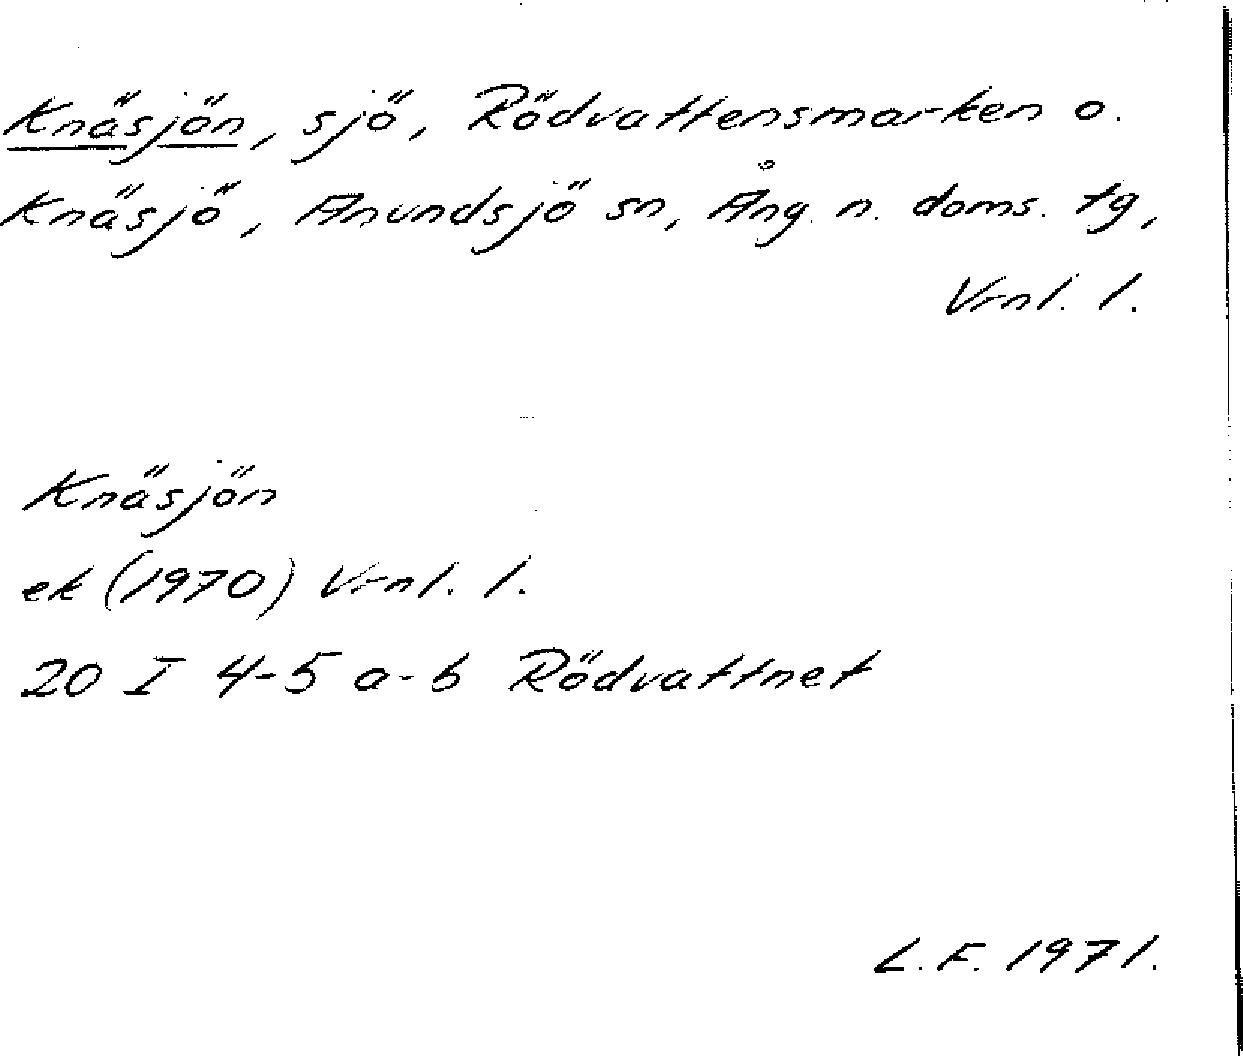 Knäsjön, sjö, Rödvattensmarken o.
Knäsjö, Anundsjö sn, Ång. n. doms. tg,
Vrnl. l.
Knäsjön
ek (1970) Vrnl. l.
20 I 4-5 a-b Rödvattnet
L.F. 1971.